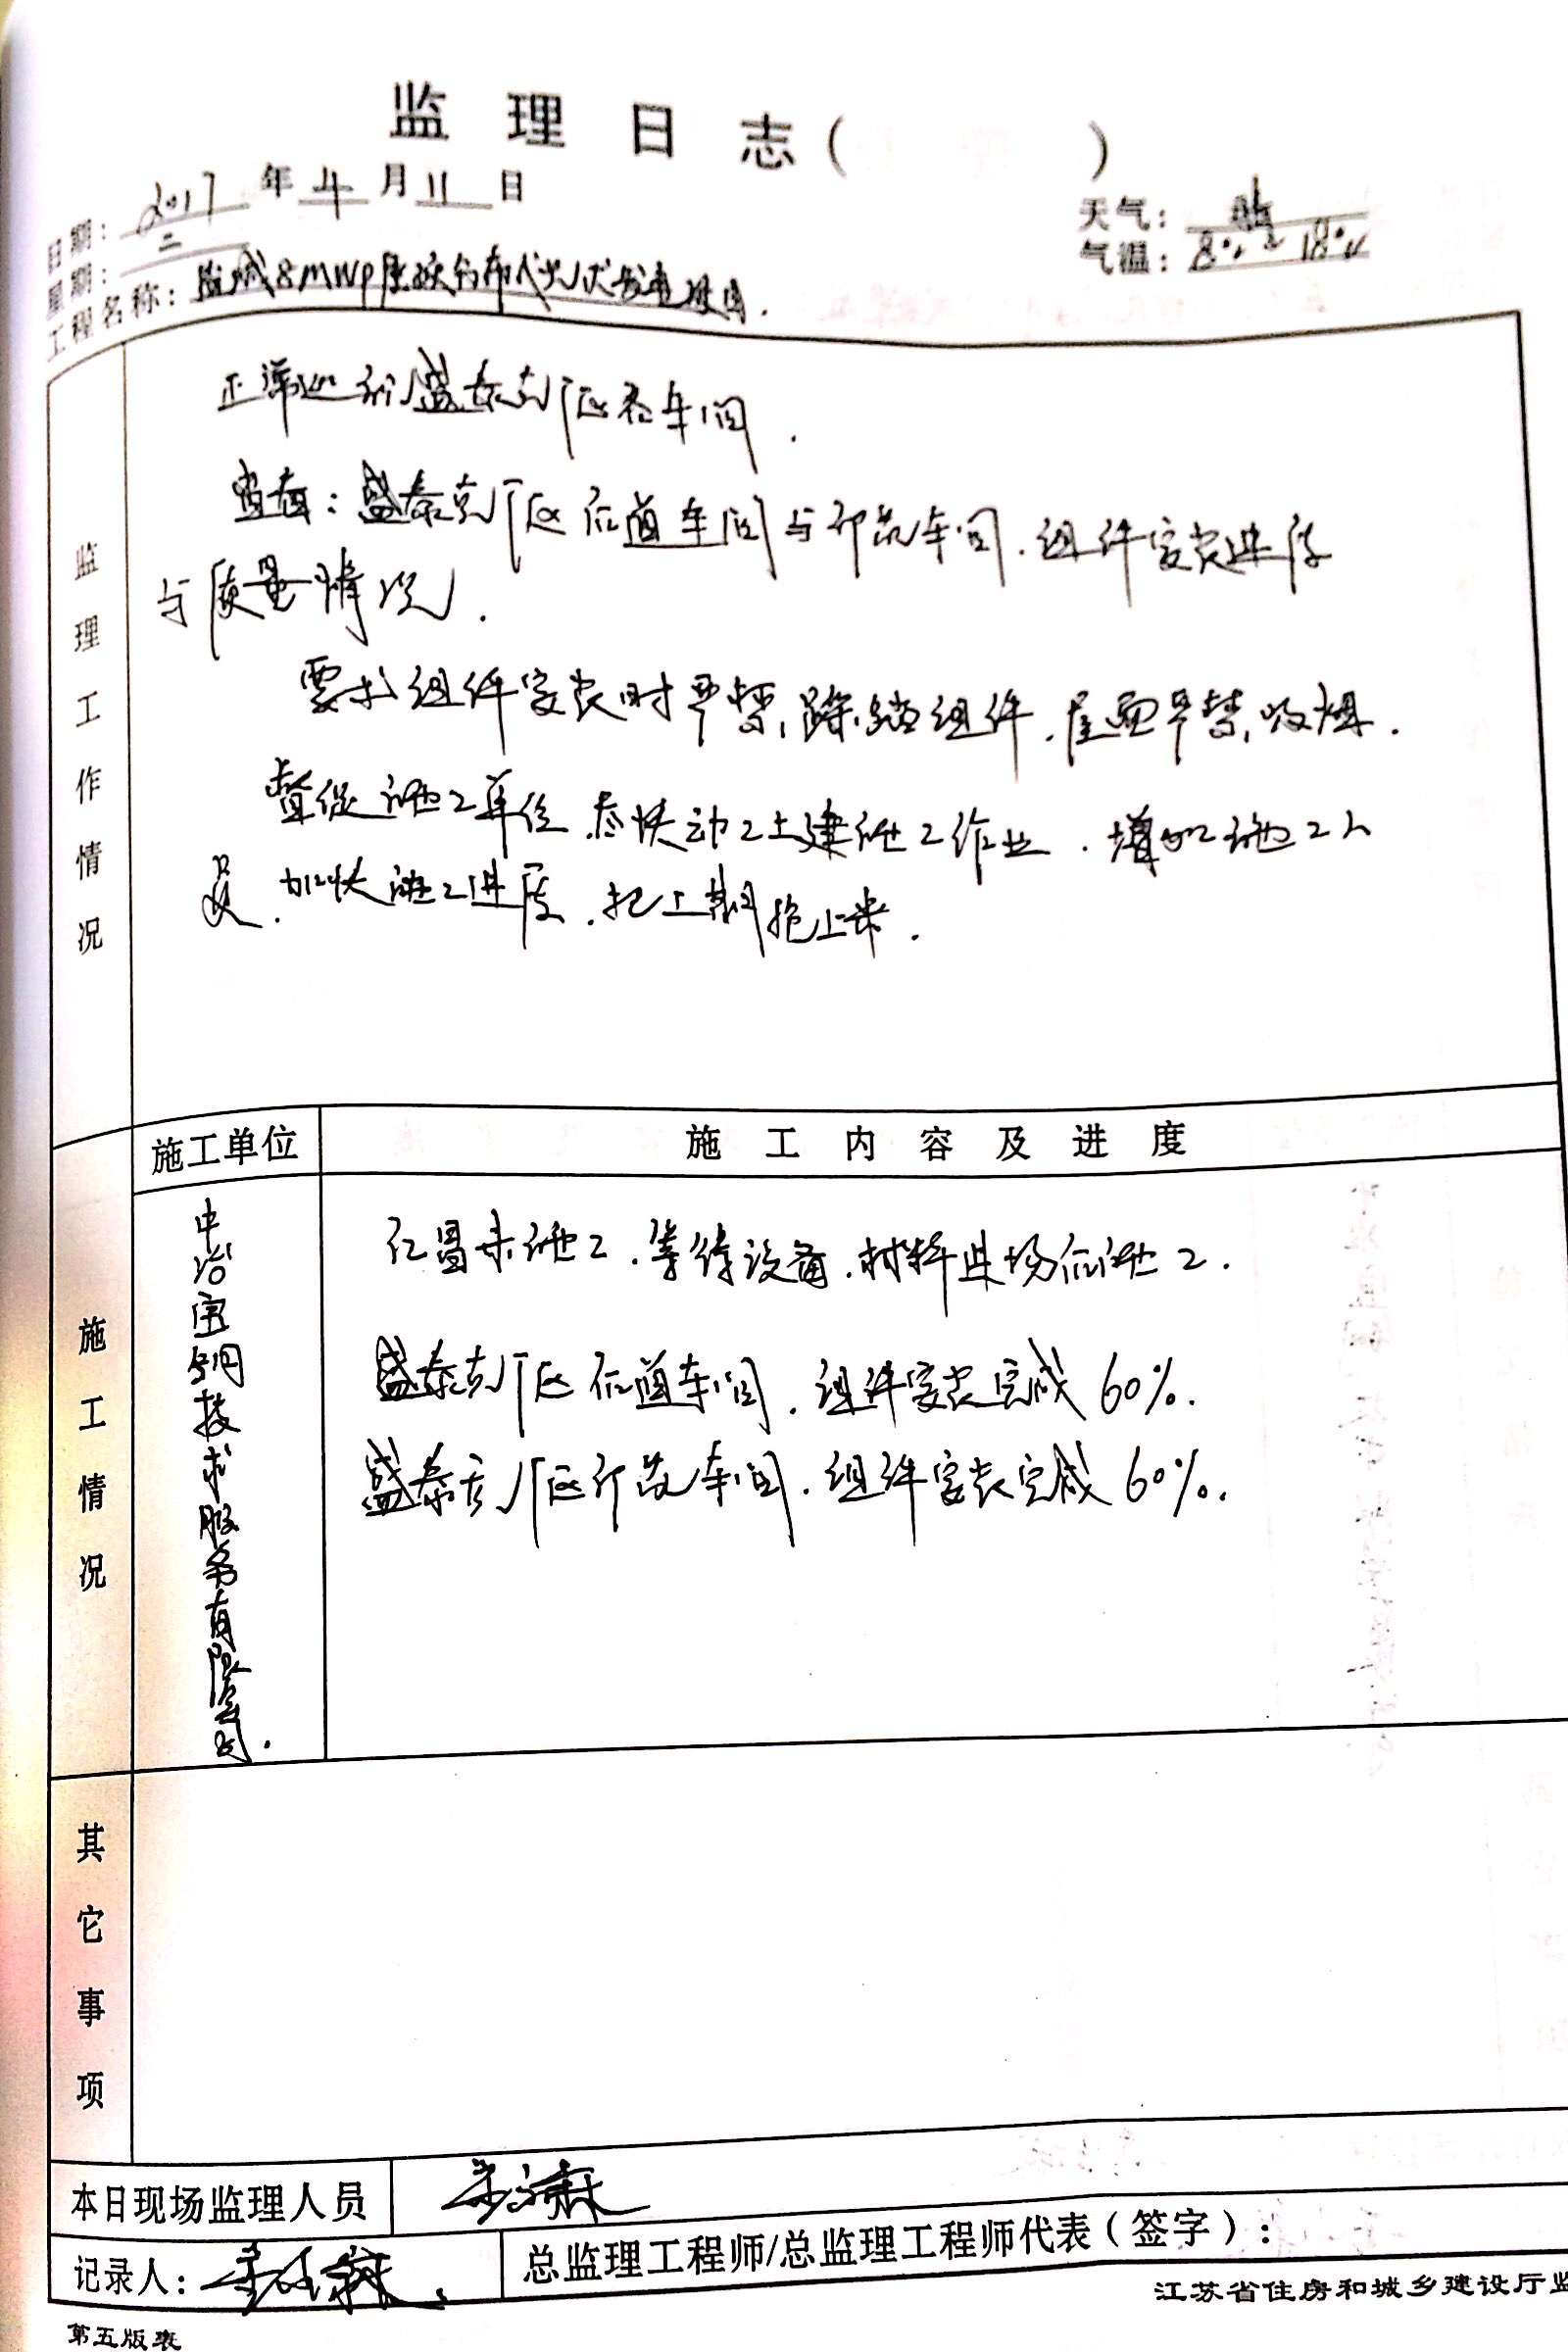 监理日志（ ）
日期：2017年4月11日
天气：晴
星期：二
气温：8℃~18℃
工程名称：盐城8MWp屋顶分布式光伏发电项目.
监理工作情况
正常巡视盛泰克厂区各车间.
查看：盛泰克厂区后道车间与印花车间.组件安装进度
与质量情况.
要求组件安装时严禁踩踏组件.屋面严禁吸烟.
督促施工单位.尽快动工土建施工作业.增加施工人
员.加快施工进度.把工期抢上来.
施工情况
施工单位
施工内容及进度
中冶宝钢技术服务有限公司.
仁昌未施工.等待设备.材料进场后施工.
盛泰克厂区后道车间.组件安装完成60%.
盛泰克厂区印花车间.组件安装完成60%.
其它事项
本日现场监理人员
记录人：
总监理工程师/总监理工程师代表（签字）：
江苏省住房和城乡建设厅监
第五版表